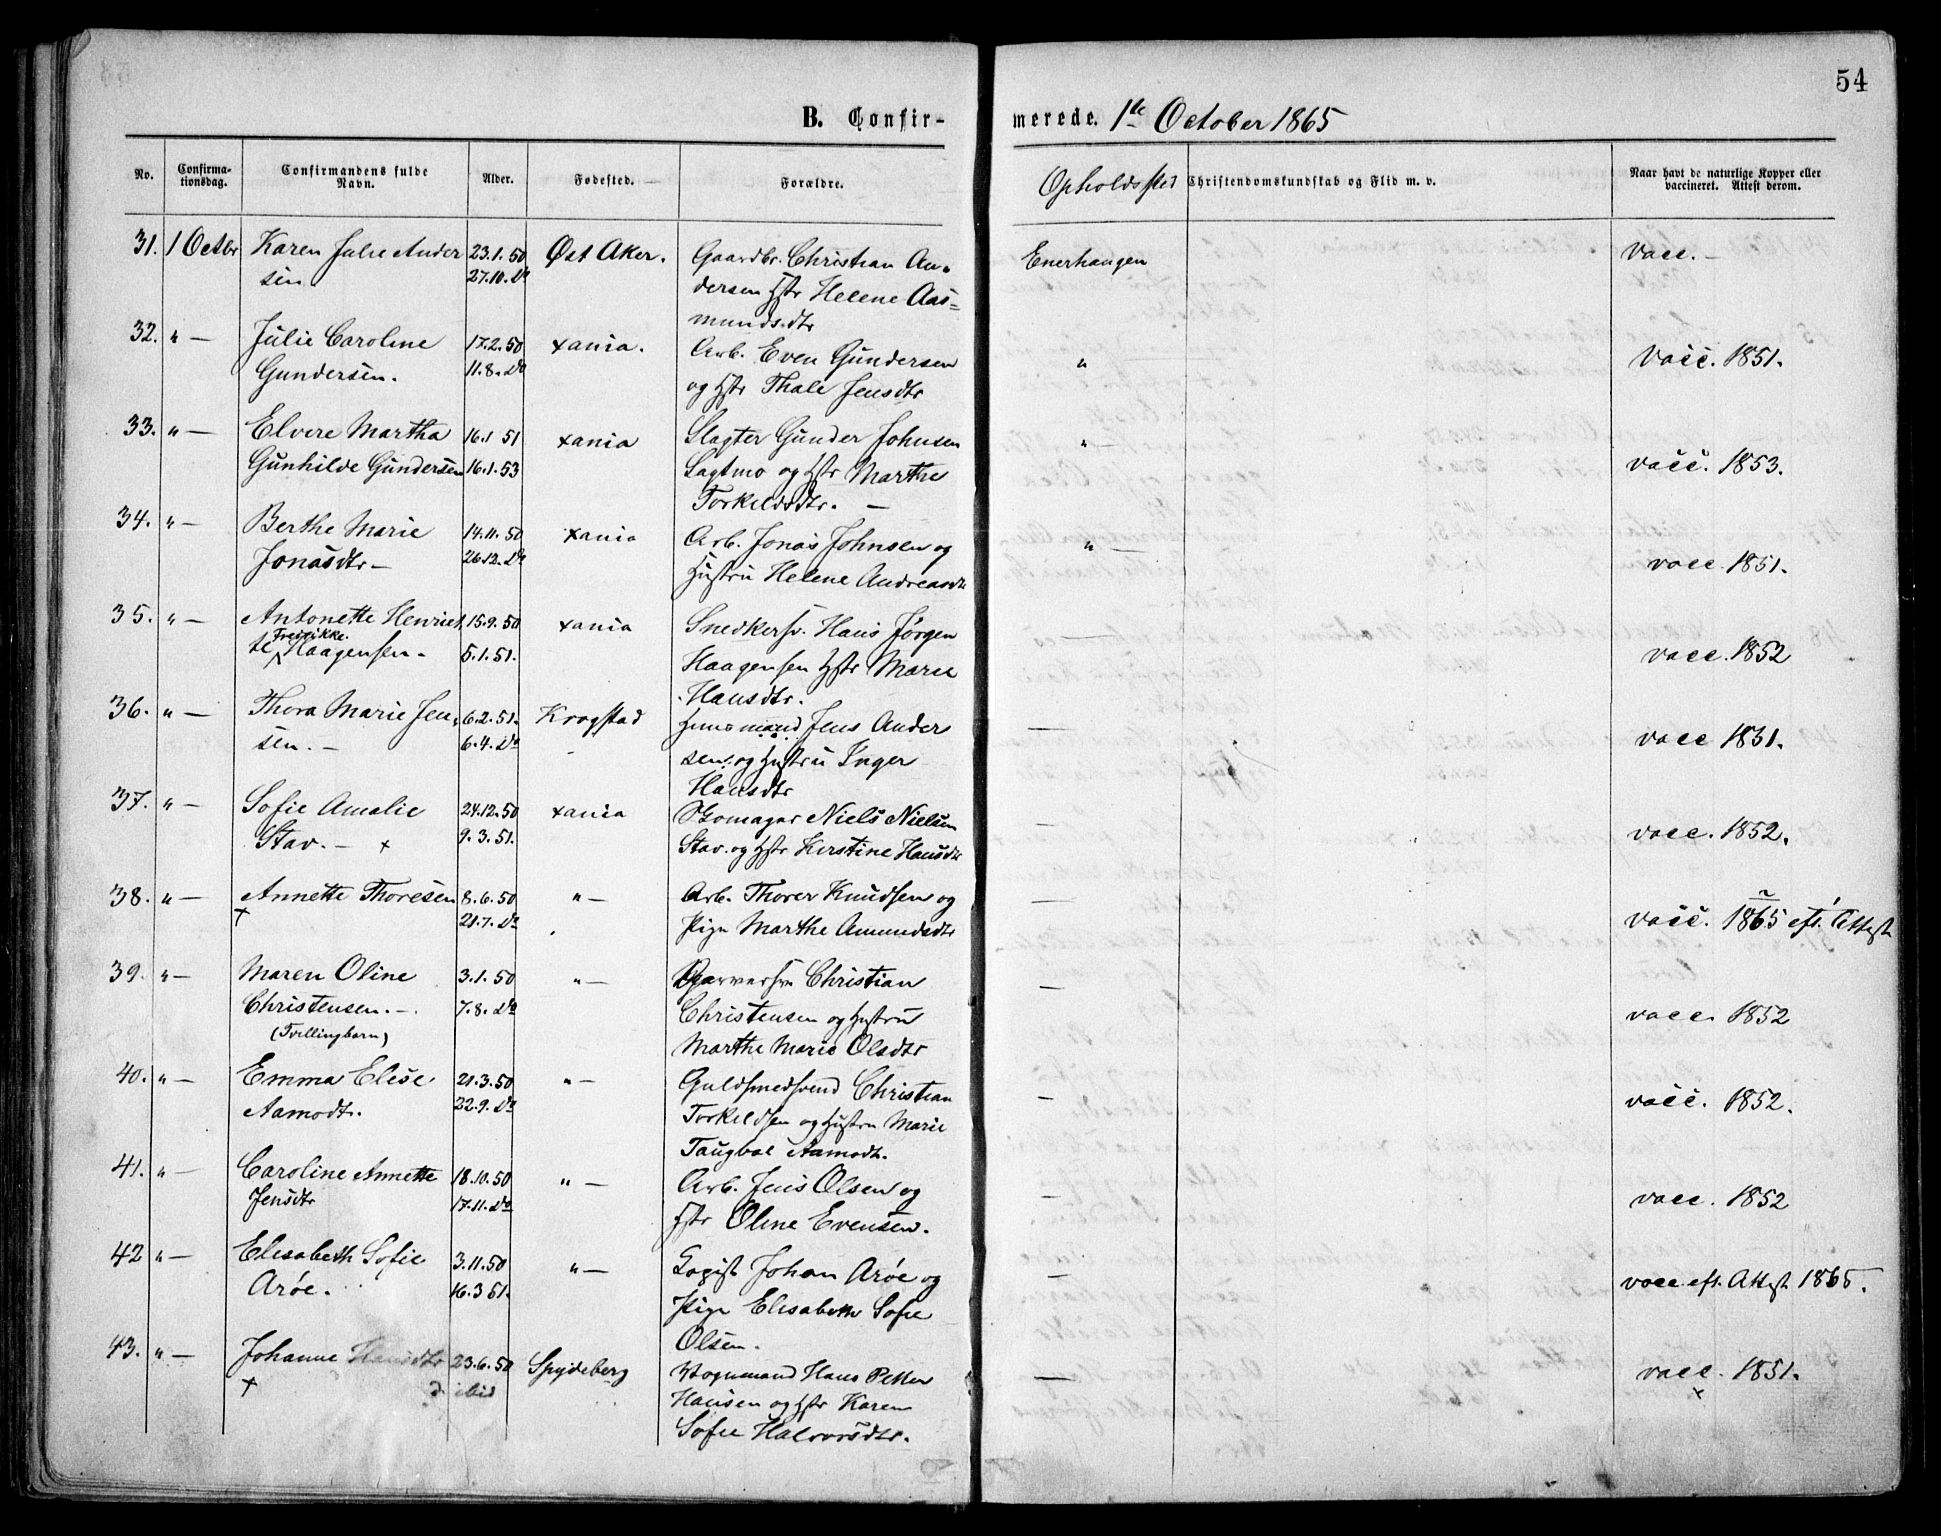 54
B. Confirmerede. 1ste October 1865
No. Confirmationsdag. Confirmandens fulde Navn. Alder. Fødested. Forældre. Opholdssted Christendomskundskab og Flid m. v. Naar havt de naturlige Kopper eller vaccineret. Attest derom.
31. 1 Octbr Karen Julie Ander 23.1.50 Øst Aker. Gaardbr. Christian An- Enerhaugen vacc. –
sen 27.10. Do dersen Hstr Helene Aas=
mundsdtr
32. " — Julie Caroline 17.2.50 Xania. Arb. Even Gundersen " — vacc. 1851.
Gundersen. 11.8. Do og Hstr Thale Jensdtr
33. " — Elvere Martha 16.1 51 Xania Slagter Gunder Johnsen " — vacc. 1853.
Gunhilde Gundersen 16.1.53 Sagtmo og Hstr Marthe
Torkildsdtr. —
34. " — Berthe Marie 14.11.50 Xania Arb. Jonas Johnsen og " — vacc. 1851.
Jonasdtr – 26.12. Do Hustru Helene Andreasdtr
35. " — Antonette Henriet 15.9.50 Xania Snedkersv. Hans Jørgen vacc. 1852
te Fredrikke Haagensen. 5.1.51. Haagensen Hstr Marie
Hansdtr.
36. " — Thora Marie Jen, 6.2.51. Krogstad Huusmand Jens Ander — vacc 1851.
sen. – 6.4. Do sen. og Hustru Inger
Hansdtr
37. " — Sofie Amalie 24.12.50 Xania Skomager Niels Nielsen — vacc. 1852.
Stav. – x 9.3.51. Stav. og Hstr Kirstine Hansdtr
38. " — Annette Thoresen 8.6.50 " — Arb. Thorer Knudsen og vacc. 1865 eft. Attest
x 21.7. Do Pige Marthe Amundsdtr
39. " — Maren Oline 3.1.50 " — Garversv. Christian — vacc. 1852
Christensen. – 7.8. Do Christensen og Hustru
(Tvillingbarn) Marthe Marie Olsdtr
40. " — Emma Elise 21.3.50 " — Guldsmedsvend Christian — vacc. 1852.
Aamodt. 22.9. Do Torkildsen og Hustru Marie
Taugbøl Aamodt.
41. " — Caroline Annette 18.10.50 " — Arb. Jens Olsen og — vacc. 1852
Jensdtr 17.11. Do Hstr Oline Evensen.
42 " — Elisabeth Sofie 3.11.50 " — Logist Johan Arøe og — vacc. eft. Attest 1865.
Arøe. 16.3 51. Pige Elisabeth Sofie
Olsen.
43. " — Johanne Hansdtr 23.6.50 Spydeberg Vognmand Hans Petter — vacc. 1851.
x Hansen og Hstr Karen x
Sofie Halvorsdtr.